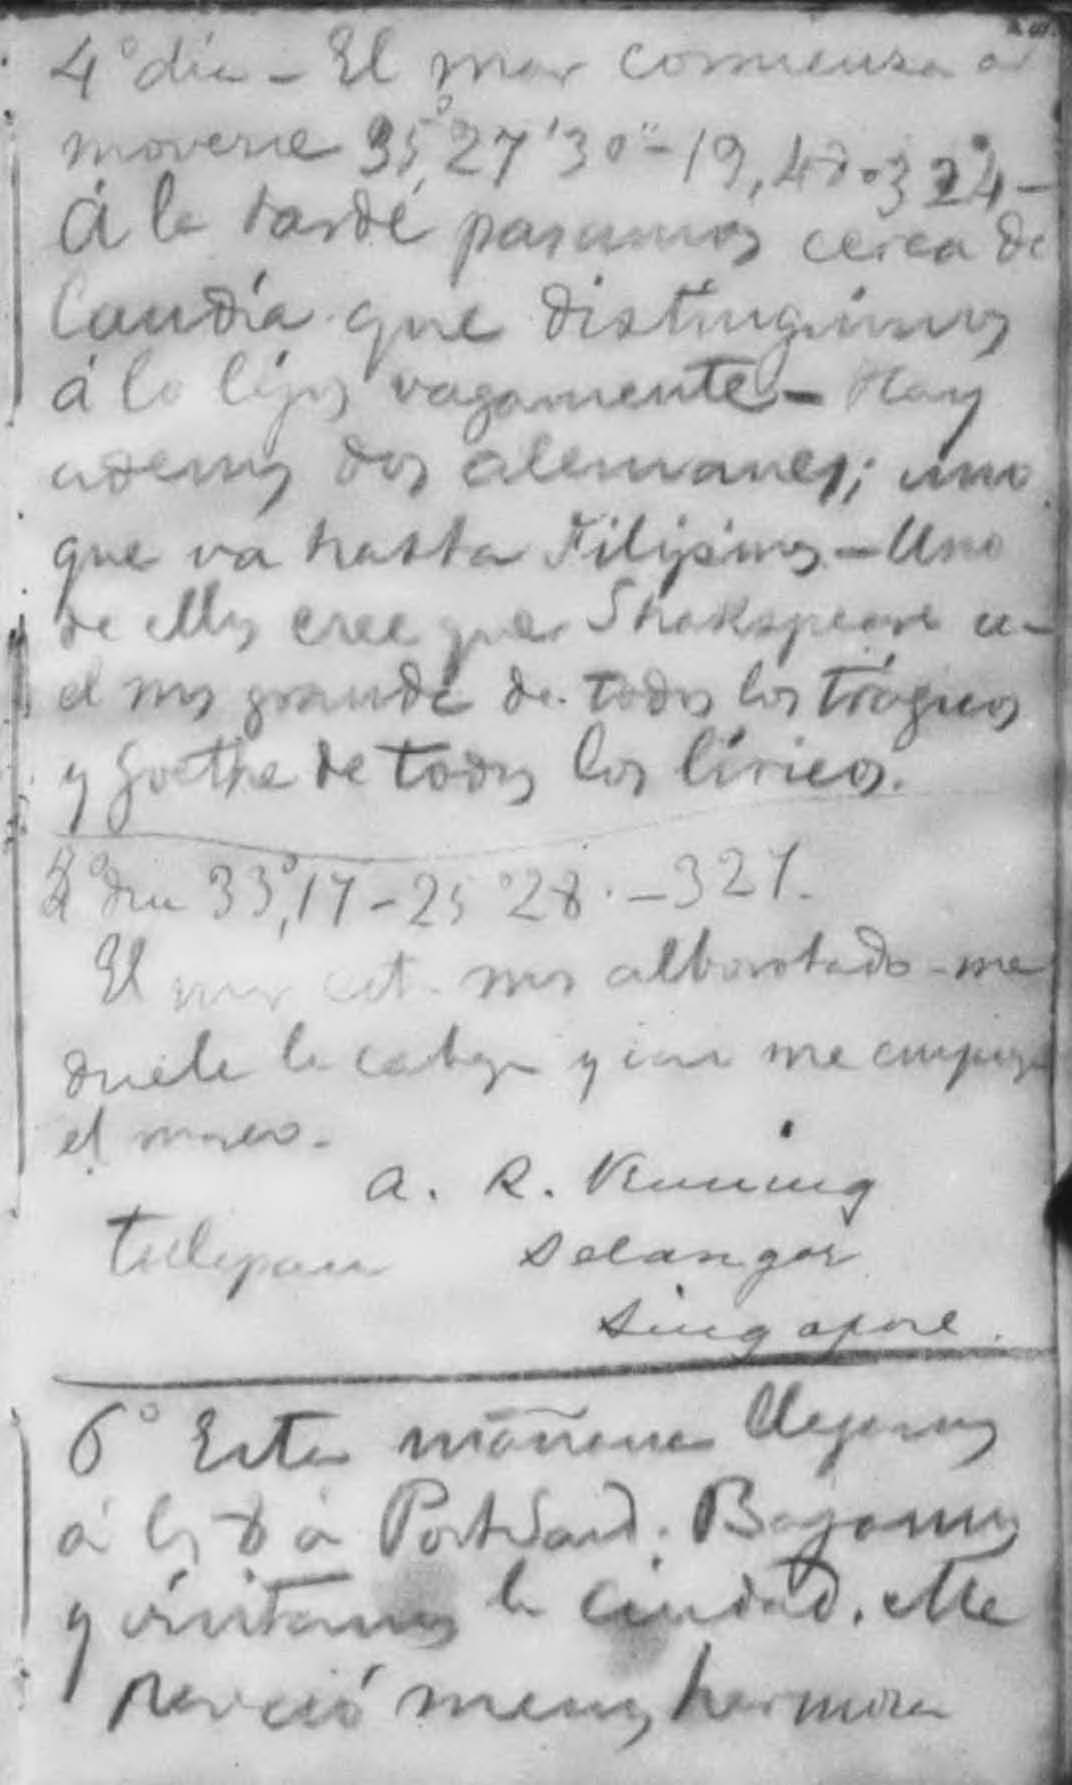 4º día - El mar comienza a
moverse 35º,27'30" - 19,48º-324 -
Á la tarde pasamos cerca de
Candía que distinguimos
á lo léjos vagamente - Hay
ademas dos alemanes; uno
que va hasta Filipinas - Uno
de ellos cree que Shakspeare es
el mas grande de todos los trágicos
y Goethe de todos los líricos.
día 33º,17 - 25º28 - 327.
El mar est mas alborotado - me
duele la cabeza y me empieza
el mareo.
A. R. Venning
Selangor
Singapore.
6º Esta mañana llegamos
á las 8 á Port Said. Bajamos
y visitamos la ciudad. Me
pareció menos hermosa